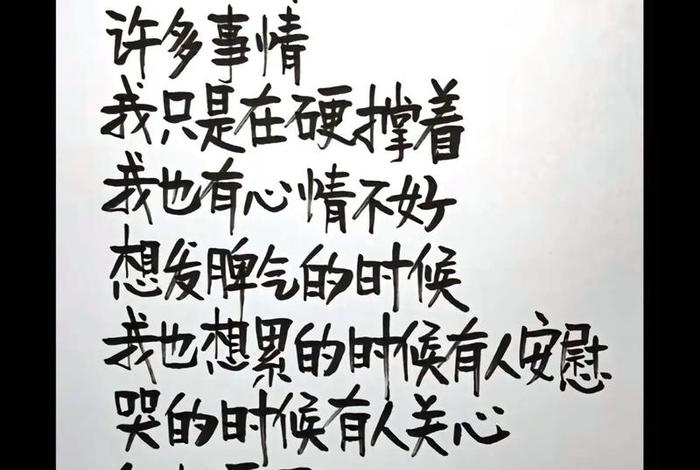 许多事情
我只是在硬撑着
我也有心情不好
想发脾气的时候
我也想累的时候有人安慰
哭的时候有人关心